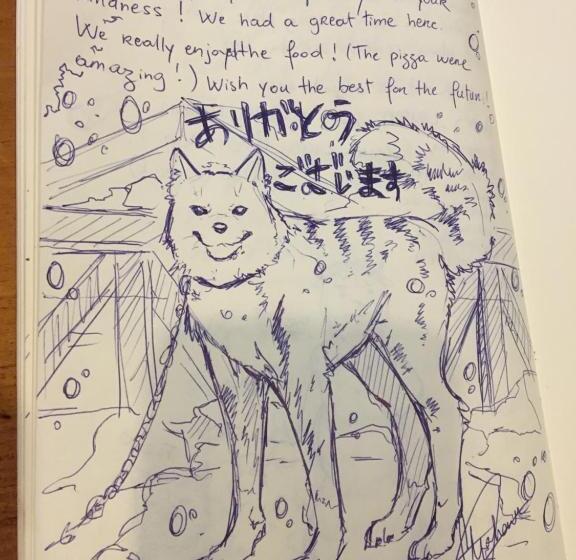 your
kindness ! We had a great time here.
We really enjoyed the food ! (The pizza were
amazing !) Wish you the best for the future !
ありがとう
ございます